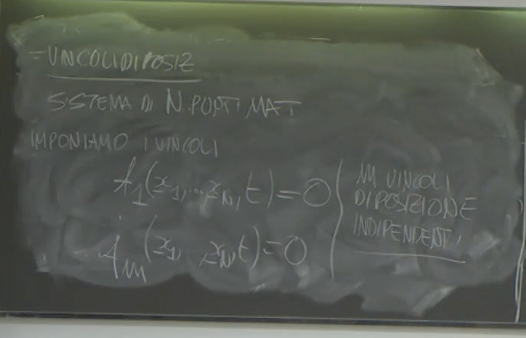 - VINCOLI DI POSIZ
SISTEMA DI N PUNTI MAT
IMPONIAMO I VINCOLI
f₁(x₁,...x_N, t) = 0
f_m(x₁, x_N, t) = 0
m VINCOLI
DI POSIZIONE
INDIPENDENTI